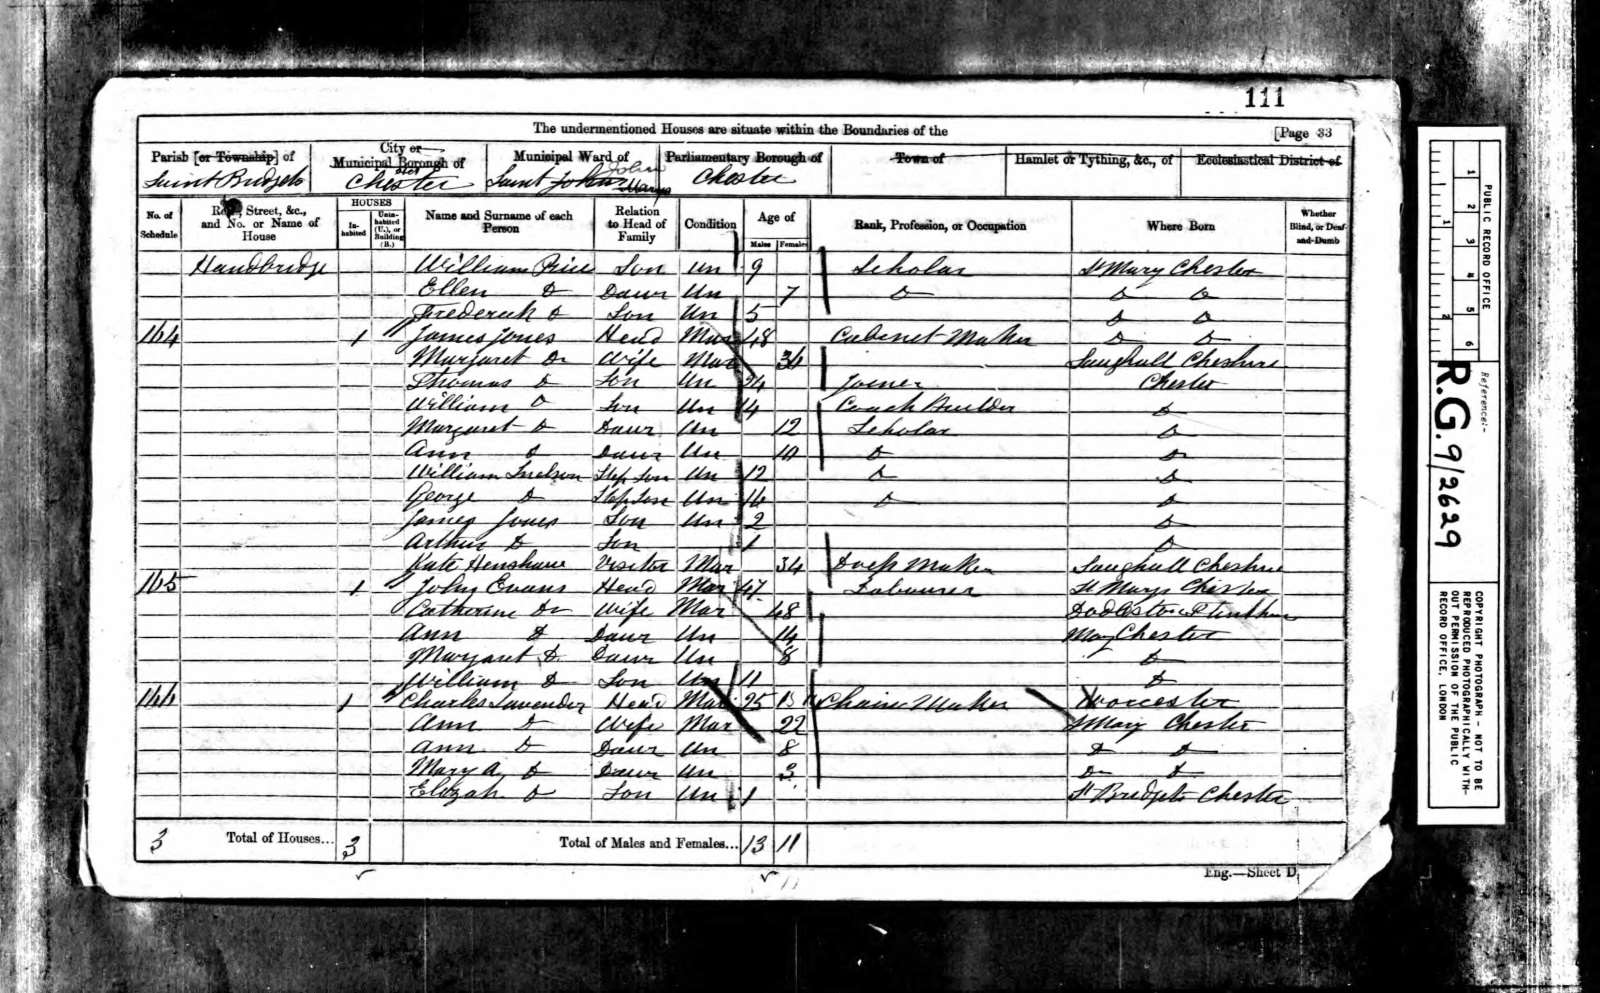 111
The undermentioned Houses are situate within the Boundaries of the [Page 33
Parish [or Township] of City or Municipal Borough of Municipal Ward of Parliamentary Borough of Town of Hamlet or Tything, &c., of Ecclesiastical District of
Saint Bridgets Chester Saint John Marys John Chester
No. of Schedule Road, Street, &c., and No. or Name of House HOUSES Inhabited Uninhabited (U.), or Building (B.) Name and Surname of each Person Relation to Head of Family Condition Age of Males Females Rank, Profession, or Occupation Where Born Whether Blind, or Deaf-and-Dumb
Handbridge William Price Son Un 9 Scholar St Mary Chester
Ellen Do Daur Un 7 Do Do Do
Frederick Do Son Un 5 Do Do
164 1 James Jones Head Mar 48 Cabinet Maker Do Do
Margaret Do Wife Mar 36 Saughall Cheshire
Thomas Do Son Un 24 Joiner Chester
William Do Son Un 14 Coach Builder Do
Margaret Do Daur Un 12 Scholar Do
Ann Do Daur Un 10 Do Do
William Step Son Un 12 Do Do
George Do Step Son Un 16 Do Do
James Jones Son Un 2 Do
Arthur Do Son 1 Do
Kate Henshaw Visitor Mar 34 Maker Saughall Cheshire
165 1 John Evans Head Mar 47 Labourer St Marys Chester
Catherine Do Wife Mar 48
Ann Do Daur Un 14 Mary Chester
Margaret Do Daur Un 8 Do
William Do Son Un 11 Do
166 1 Charles Lavender Head Mar 25 Chair Maker Worcester
Ann Do Wife Mar 22 St Mary Chester
Ann Do Daur Un 8 Do Do
Mary A. Do Daur Un 3 Do Do
Elizah Do Son Un 1 St Bridgets Chester
3 Total of Houses... 3 Total of Males and Females... 13 11
Eng.—Sheet D.
PUBLIC RECORD OFFICE
1 2 3 4 5 6
1 2
Reference:-
R.G. 9/2629
COPYRIGHT PHOTOGRAPH - NOT TO BE REPRODUCED PHOTOGRAPHICALLY WITHOUT PERMISSION OF THE PUBLIC RECORD OFFICE, LONDON